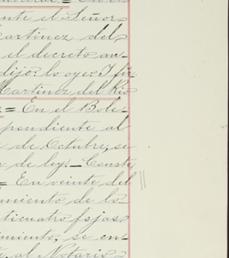 nte el Señor
Martinez del
el decreto an-
dijo: lo oye
Martinez del Rio
= En el Bole-
pondiente al
de Octubre, se
de ley = Conste
= En veinte del
miento de lo
ticuatro fojas
imiento, se en-
al Notario